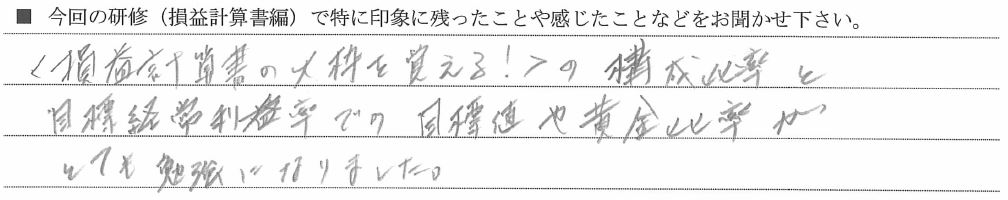 ■ 今回の研修（損益計算書編）で特に印象に残ったことや感じたことなどをお聞かせ下さい。
＜損益計算書の大枠を覚える！＞の構成比率と
目標経常利益率での目標値や黄金比率が
とても勉強になりました。